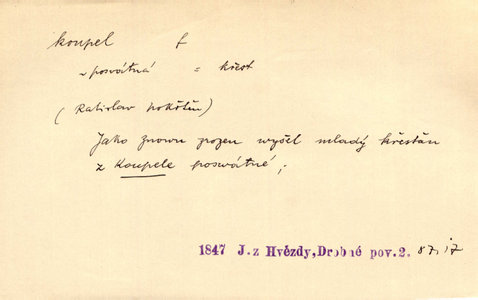 koupel f
~ posvátná = křest
(Ratislav pokřtěn)
Jako znovu zrozen wyšel mladý křesťan
z koupele poswátné;
1847 J. z Hvězdy, Drobné pov. 2. 87, 17